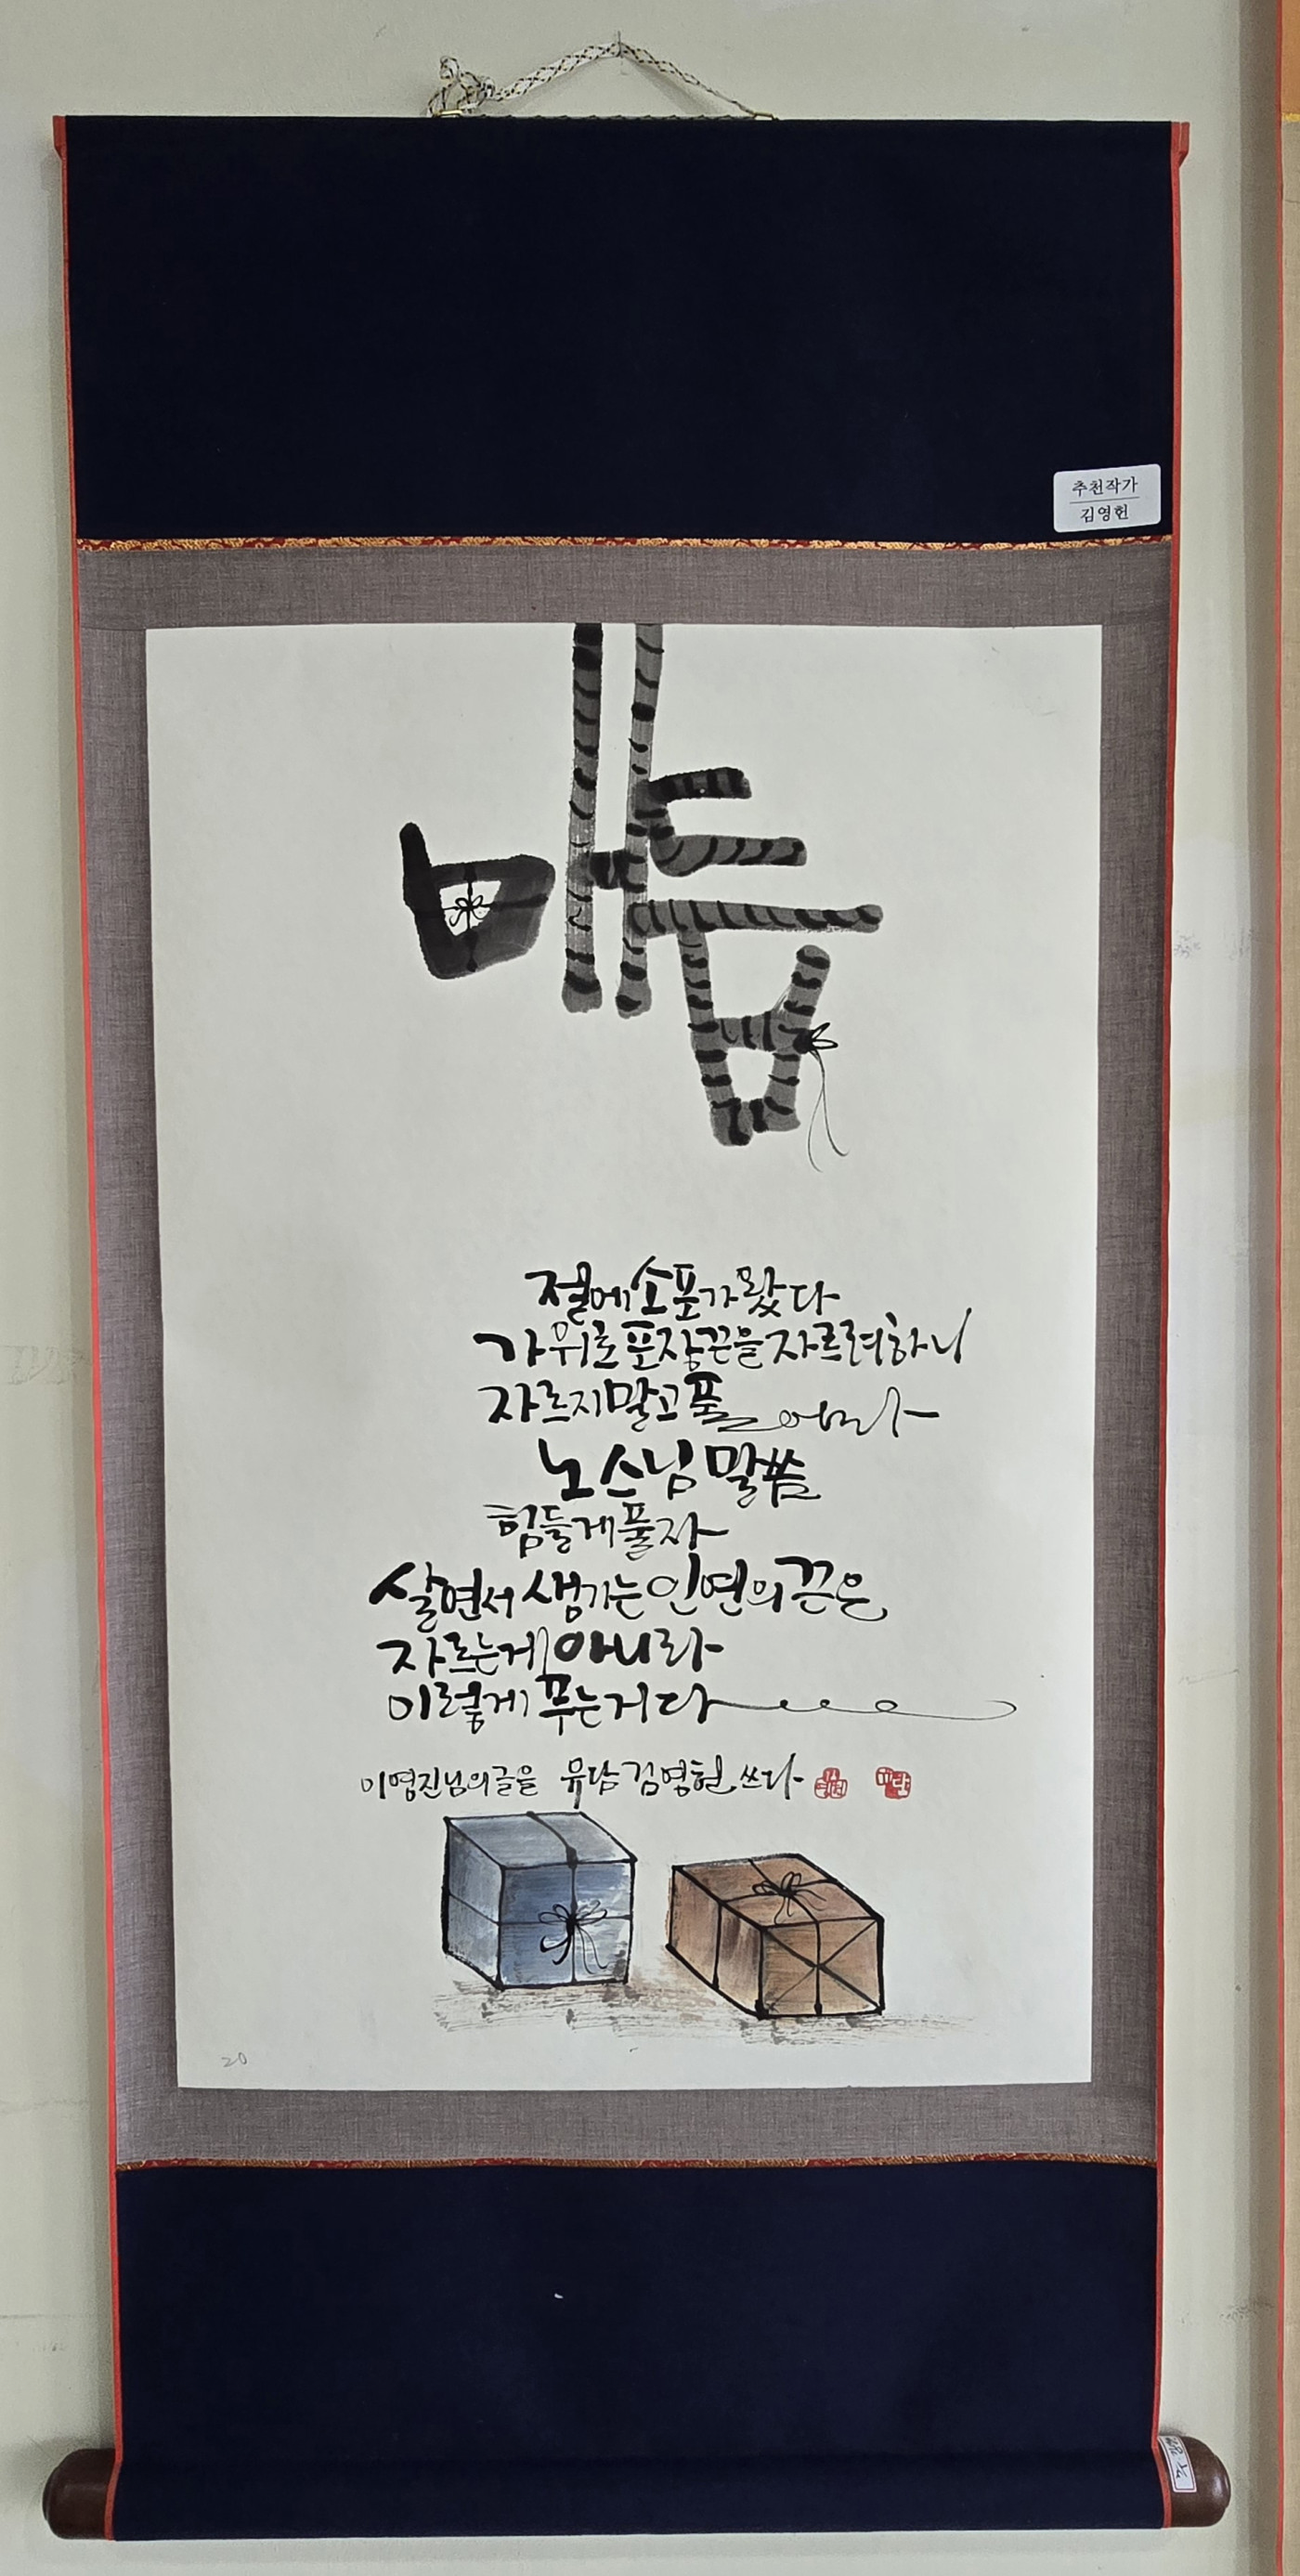 추천작가
김영헌
매듭
절에 소포가 왔다
가위로 포장끈을 자르려하니
자르지말고 풀어라
노스님 말씀
힘들게 풀자
살면서 생기는 인연의 끈은
자르는게 아니라
이렇게 푸는거다
이영진님의 글을 유담 김영헌 쓰다
20